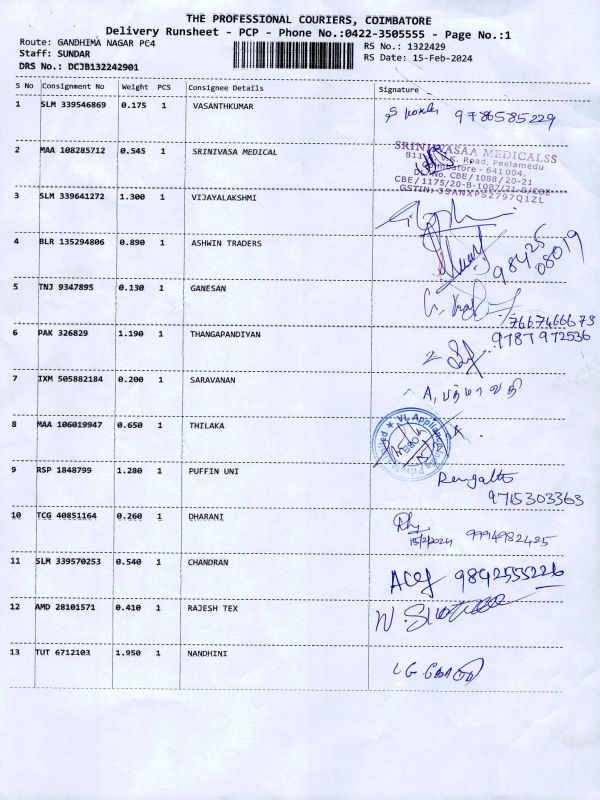 THE PROFESSIONAL COURIERS, COIMBATORE
Delivery Runsheet - PCP - Phone No.:0422-3505555 - Page No.:1
Route: GANDHIMA NAGAR PC4
RS No.: 1322429
Staff: SUNDAR
RS Date: 15-Feb-2024
DRS No.: DCJB132242901
S No Consignment No Weight PCS Consignee Details Signature
1 SLM 339546869 0.175 1 VASANTHKUMAR 9786585229
2 MAA 108285712 0.545 1 SRINIVASA MEDICAL
SRINIVASAA MEDICALSS
Road, Peelamedu
Coimbatore - 641 004.
CBE/1088/20-21
GSTIN: 33ANXPS2797Q1ZL
3 SLM 339641272 1.300 1 VIJAYALAKSHMI
4 BLR 135294806 0.890 1 ASHWIN TRADERS
98425
08019
5 TNJ 9347895 0.130 1 GANESAN
7667466673
6 PAK 326829 1.190 1 THANGAPANDIYAN 9787972536
7 IXM 505882184 0.200 1 SARAVANAN A. பத்மாவதி
8 MAA 106019947 0.650 1 THILAKA
9 RSP 1848799 1.280 1 PUFFIN UNI
9715303363
10 TCG 40851164 0.260 1 DHARANI
15/2/2024 9994982425
11 SLM 339570253 0.540 1 CHANDRAN 9842555226
12 AMD 28101571 0.410 1 RAJESH TEX
13 TUT 6712103 1.950 1 NANDHINI